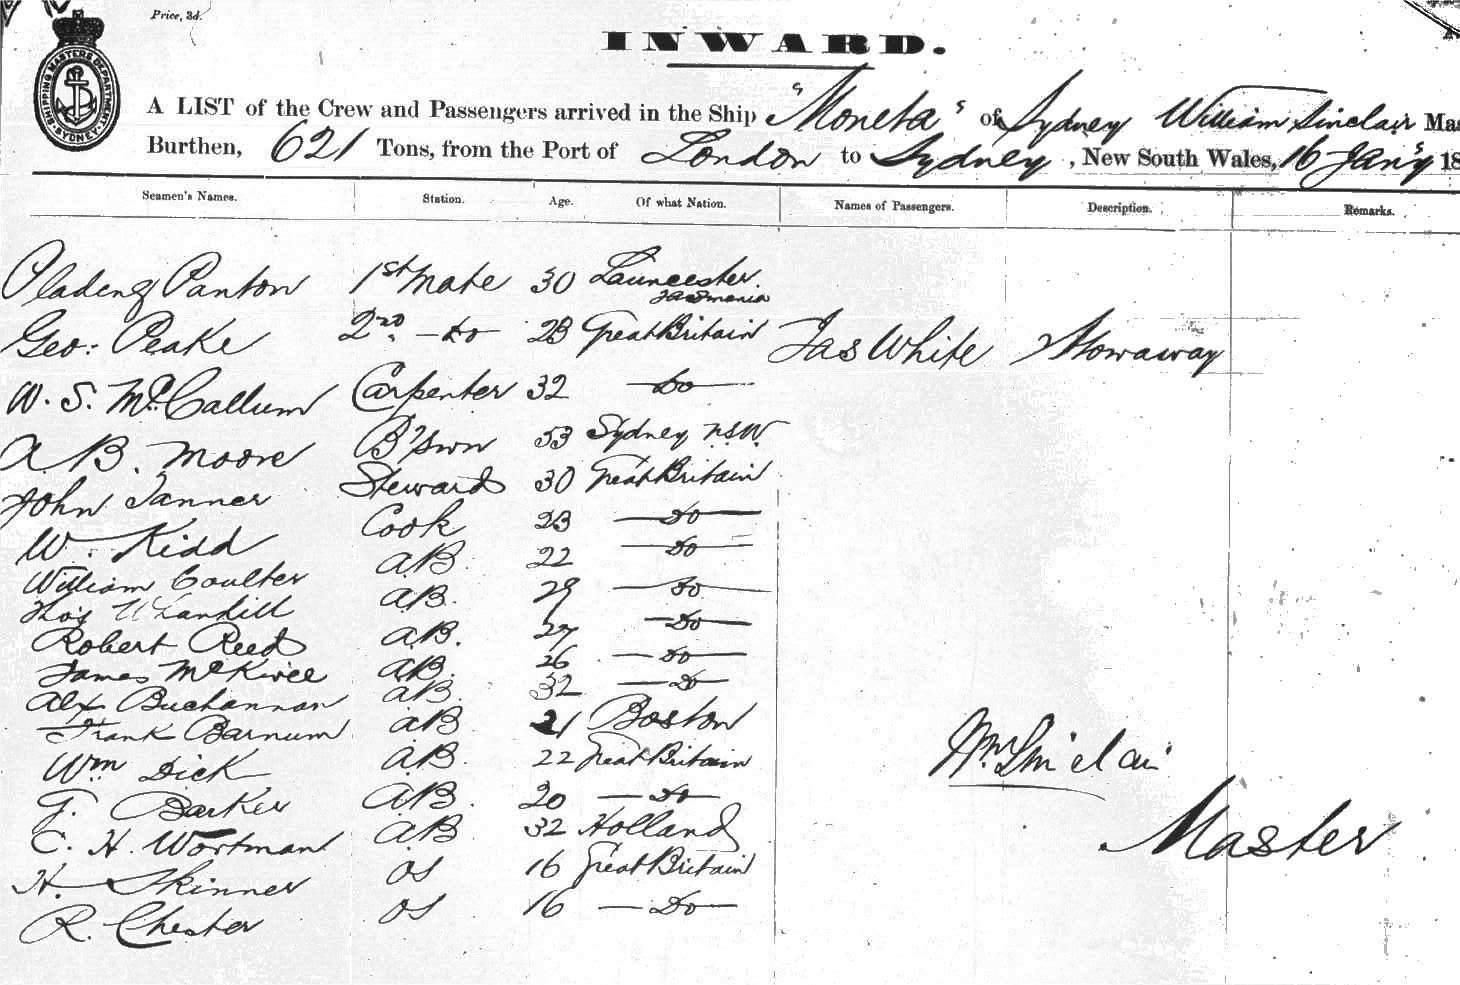 Price, 3d.
INWARD.
SHIPPING MASTERS DEPARTMENT SYDNEY
A LIST of the Crew and Passengers arrived in the Ship "Moneta" of Sydney William Sinclair Mas
Burthen, 621 Tons, from the Port of London to Sydney, New South Wales, 16 Jan'y 18
Seamen's Names. Station. Age. Of what Nation. Names of Passengers. Description. Remarks.
Panton 1st Mate 30 Launcester. Tasmania
Geo: Peake 2nd - do 23 Great Britain Jas White Stowaway
W. S. McCallum Carpenter 32 - Do -
A B. Moore B'swn 53 Sydney N.S.W.
John Tanner Steward 30 Great Britain
W. Kidd Cook 23 - Do -
William Coulter AB. 22 - Do -
Thos AB. 29 - Do -
Robert Reed AB. 27 - Do -
James AB. 26 - Do -
Alex Buchannan AB. 32 - Do -
Frank Barnum AB 21 Boston
Wm Dick AB. 22 Great Britain
Barker AB. 20 - Do -
C. H. Wortman AB 32 Holland
H. Skinner OS 16 Great Britain
R. Chester OS 16 - Do -
Wm Sinclair
Master